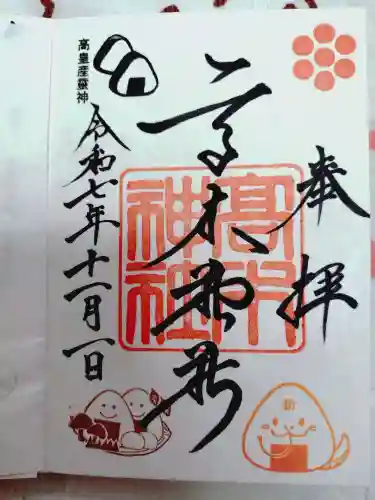 奉拝
高木神社
高木神社
高皇産霊神
令和七年十一月一日